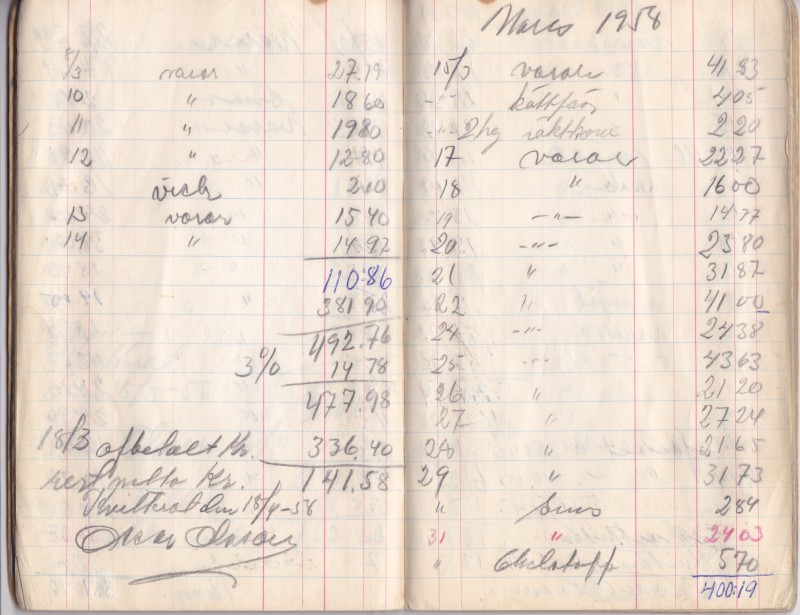 8/3 varor 27.19
10 " 18 60
11 " 19 80
12 " 12-80
2.10
13 varor 15 40
14 " 14.97
110.86
381 90
492.76
3% 14 78
477.98
18/3 afbetalt Kr. 336.40
rest netto Kr. 141.58
Kvitteras den 18/4-58
Oscar
Mars 1958
15/3 varor 41 83
-"- köttfärs 4 05
-"- 2 hg 2 20
17 varor 22 27
18 " 16 00
19 -"- 14 77
20 -"- 23 80
21 " 31 87
22 " 41 00
24 -"- 24 38
25 -"- 43 63
26 " 21 20
27 " 27 24
28 " 21 65
29 " 31 73
" 2 84
31 " 24 03
" 5 70
400.19